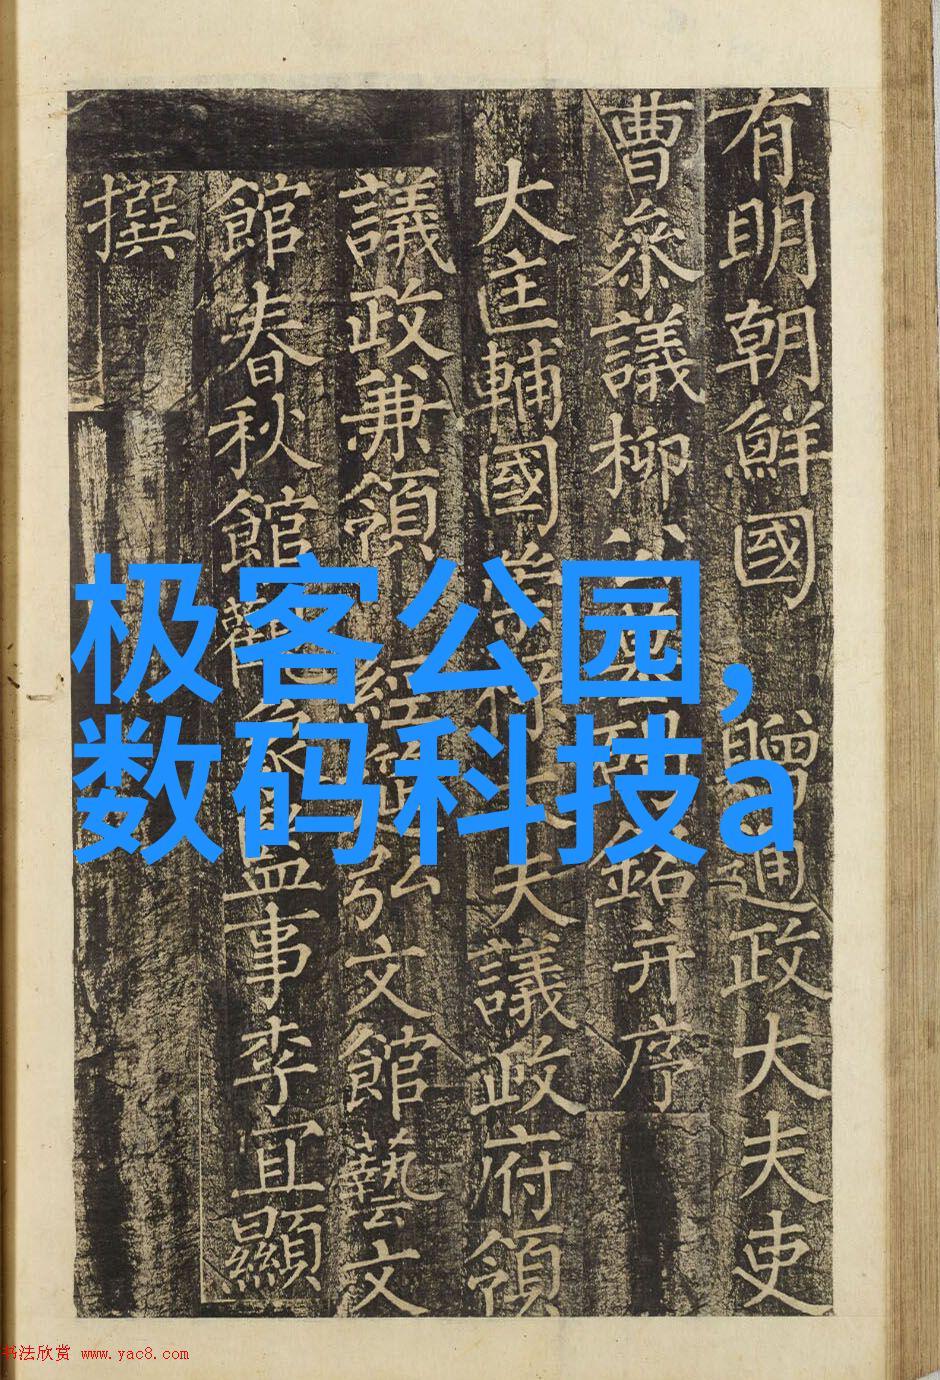 有明朝鮮國 贈通政大夫吏
曹叅議柳公銘并序
大匡輔國崇祿大夫議政府領
議政兼領 經筵弘文館藝文
館春秋館觀象監事李宜顯
撰
极客公园,
数码科技a
书法欣赏 www.yac8.com